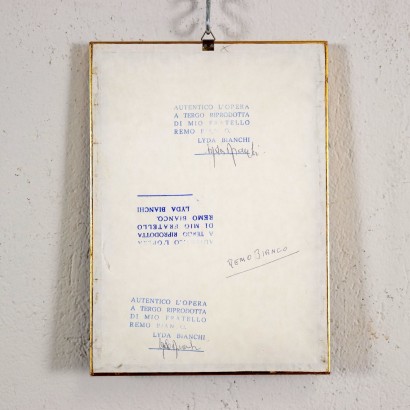 AUTENTICO L'OPERA
A TERGO RIPRODOTTA
DI MIO FRATELLO
REMO BIANCO.
LYDA BIANCHI
Lyda Bianchi
L'OPERA
A TERGO RIPRODOTTA
DI MIO FRATELLO
REMO BIANCO.
LYDA BIANCHI
REMO BIANCO
AUTENTICO L'OPERA
A TERGO RIPRODOTTA
DI MIO FRATELLO
REMO BIANCO.
LYDA BIANCHI
Lyda Bianchi